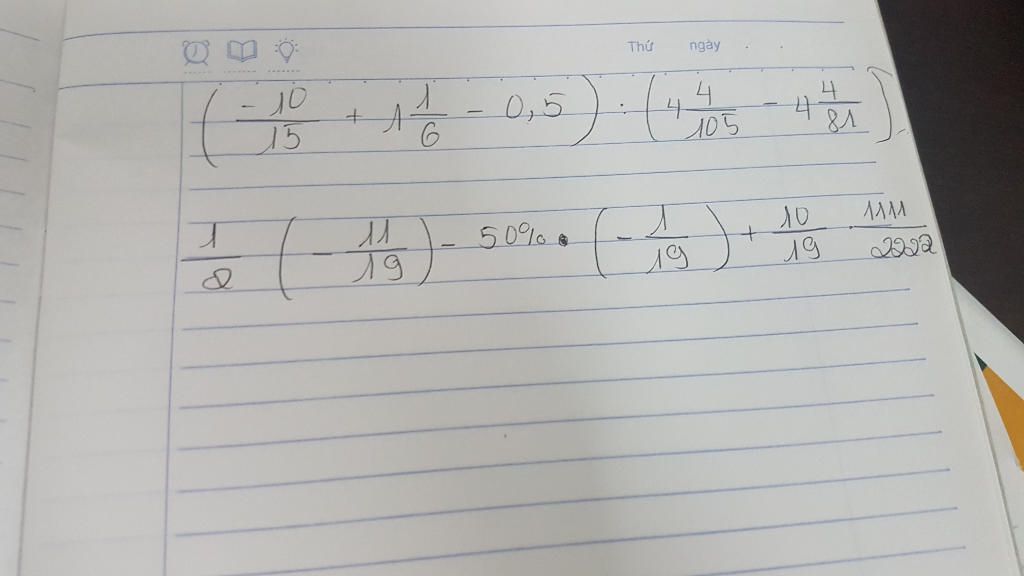 Thứ ngày . .
( -10/15 + 1 1/6 - 0,5 ) : ( 4 4/105 - 4 4/81 )
1/2 ( - 11/19 ) - 50% . ( - 1/19 ) + 10/19 . 1111/2222